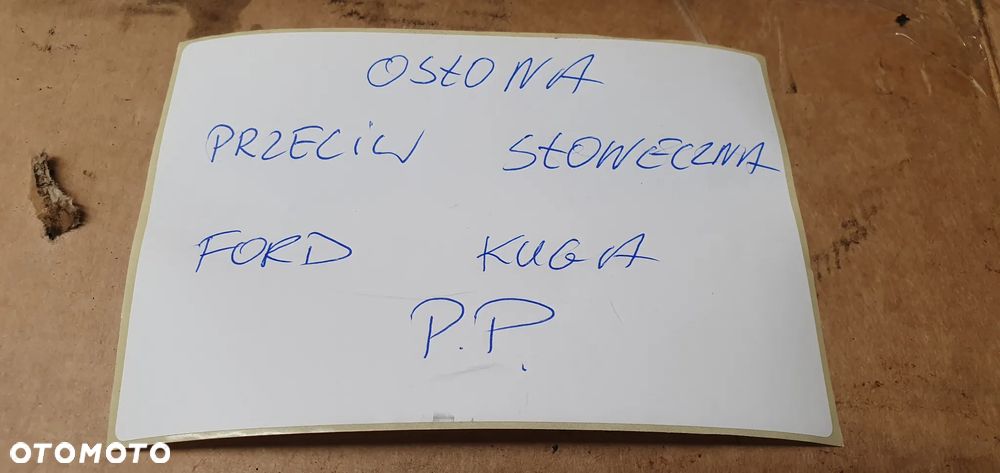 OSŁONA
PRZECIW SŁOWECZNA
FORD KUGA
P.P.
OTOMOTO